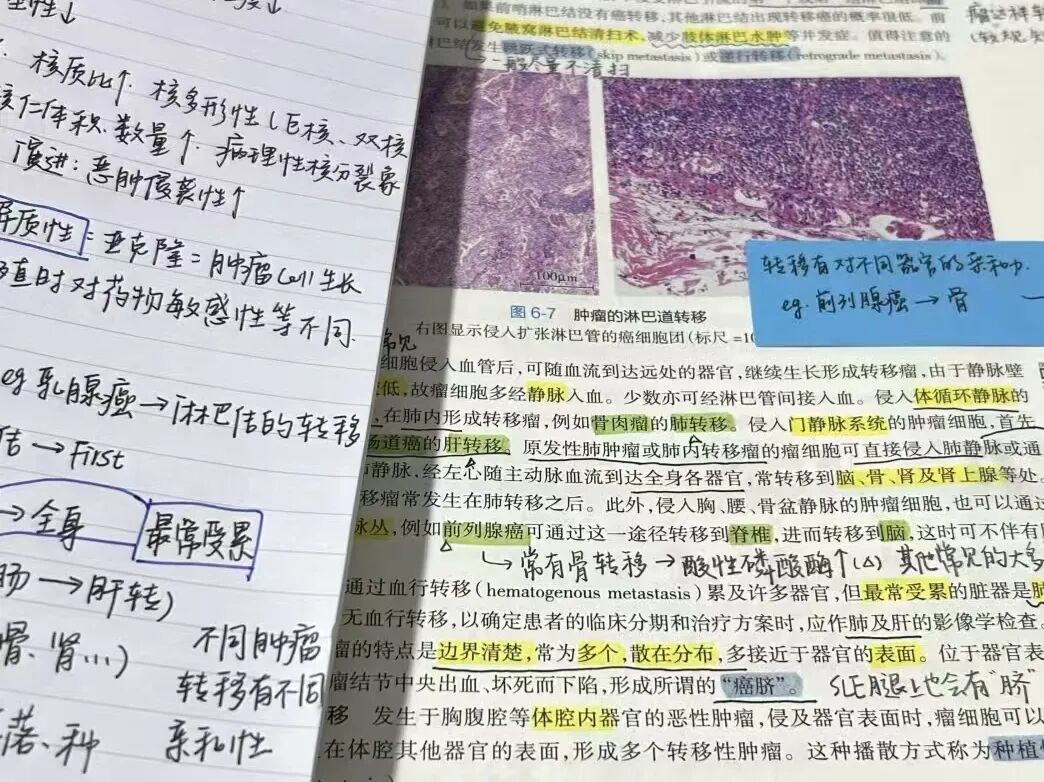 核质比↑. 核多形性(巨核、双核
核仁体积.数量↑. 病理性核分裂象
演进:恶肿侵袭性↑
异质性=亚克隆=肿瘤cell生长
殖时对药物敏感性等不同
eg乳腺癌→淋巴结的转移
结→First
→全身 最常受累
肠→肝转)
骨、肾…) 不同肿瘤
转移有不同
亲和性
如果前哨淋巴结没有癌转移,其他淋巴结出现转移癌的概率很低。前
可以避免腋窝淋巴结清扫术,减少肢体淋巴水肿等并发症。值得注意的
巴结发生跳跃式转移(skip metastasis)或逆行转移(retrograde metastasis)。
一般尽量不清扫
100μm
图 6-7 肿瘤的淋巴道转移
右图显示侵入扩张淋巴管的癌细胞团(标尺=10
转移有对不同器官的亲和力.
eg.前列腺癌→骨
常见
细胞侵入血管后,可随血流到达远处的器官,继续生长形成转移瘤,由于静脉壁
低,故瘤细胞多经静脉入血。少数亦可经淋巴管间接入血。侵入体循环静脉的
,在肺内形成转移瘤,例如骨肉瘤的肺转移。侵入门静脉系统的肿瘤细胞,首先
肠道癌的肝转移。原发性肺肿瘤或肺内转移瘤的瘤细胞可直接侵入肺静脉或通
静脉,经左心随主动脉血流到达全身各器官,常转移到脑、骨、肾及肾上腺等处。
移瘤常发生在肺转移之后。此外,侵入胸、腰、骨盆静脉的肿瘤细胞,也可以通过
脉丛,例如前列腺癌可通过这一途径转移到脊椎,进而转移到脑,这时可不伴有
常有骨转移→酸性磷酸酶↑(△) 其他常见的大多
通过血行转移(hematogenous metastasis)累及许多器官,但最常受累的脏器是肺
无血行转移,以确定患者的临床分期和治疗方案时,应作肺及肝的影像学检查。
瘤的特点是边界清楚,常为多个,散在分布,多接近于器官的表面。位于器官表
瘤结节中央出血、坏死而下陷,形成所谓的“癌脐”。 SLE腿上也会有“脐”
移 发生于胸腹腔等体腔内器官的恶性肿瘤,侵及器官表面时,瘤细胞可以
在体腔其他器官的表面,形成多个转移性肿瘤。这种播散方式称为种植性